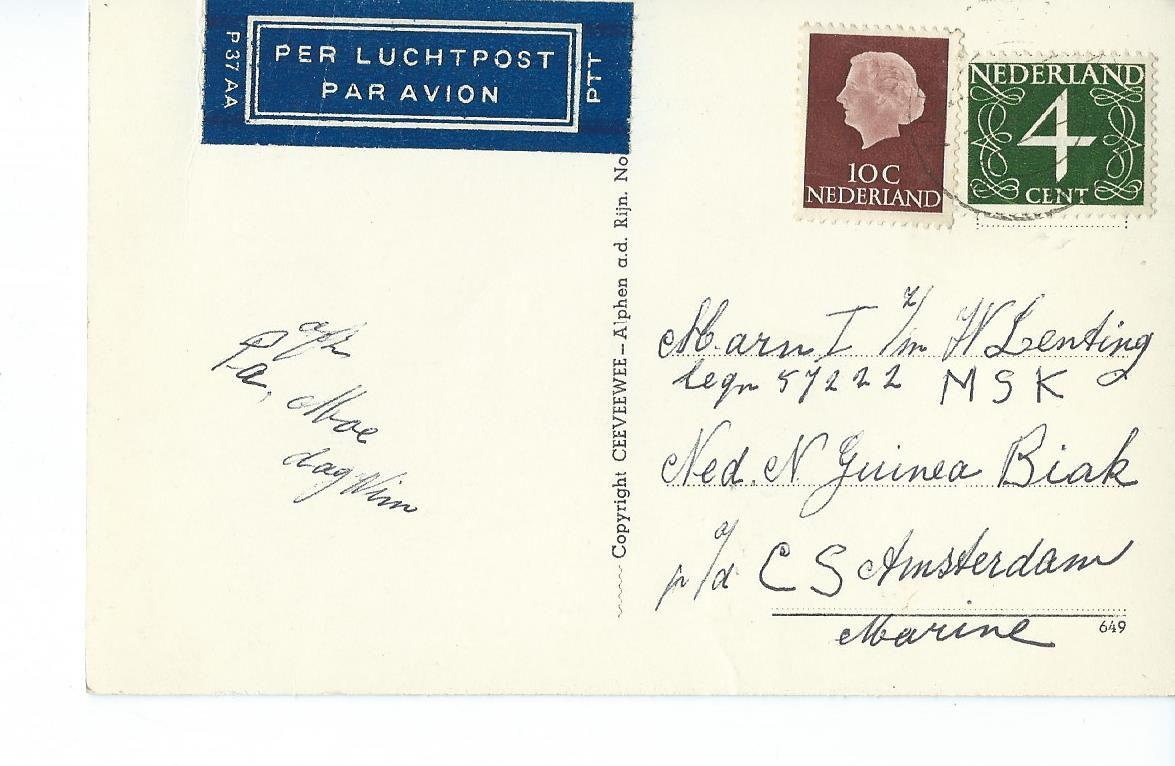 P37AA
PER LUCHTPOST
PAR AVION
PTT
10 C
NEDERLAND
NEDERLAND
4
CENT
Pa, Moe
dag Wim
Copyright CEEVEEWEE – Alphen a.d. Rijn. No
Marn I z/m W Lenting
legn 57222 MSK
Ned. N Guinea Biak
p/a C S Amsterdam
Marine
649